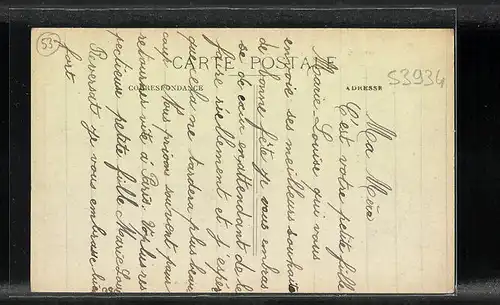 53
CARTE POSTALE
CORRESPONDANCE
ADRESSE
53934
Ma Mère
C'est votre petite fille
Marie Louise qui vous
envoie ses meilleurs souhaits
de bonne fête je vous embras
se de cœur en attendant de le
faire réellement et j'espère
que cela ne tardera plus beau
coup. Nous prions souvent pour
retourner vite à Paris. Votre res
pectueuse petite fille Marie Lou
Reversat je vous embrasse bien
fort